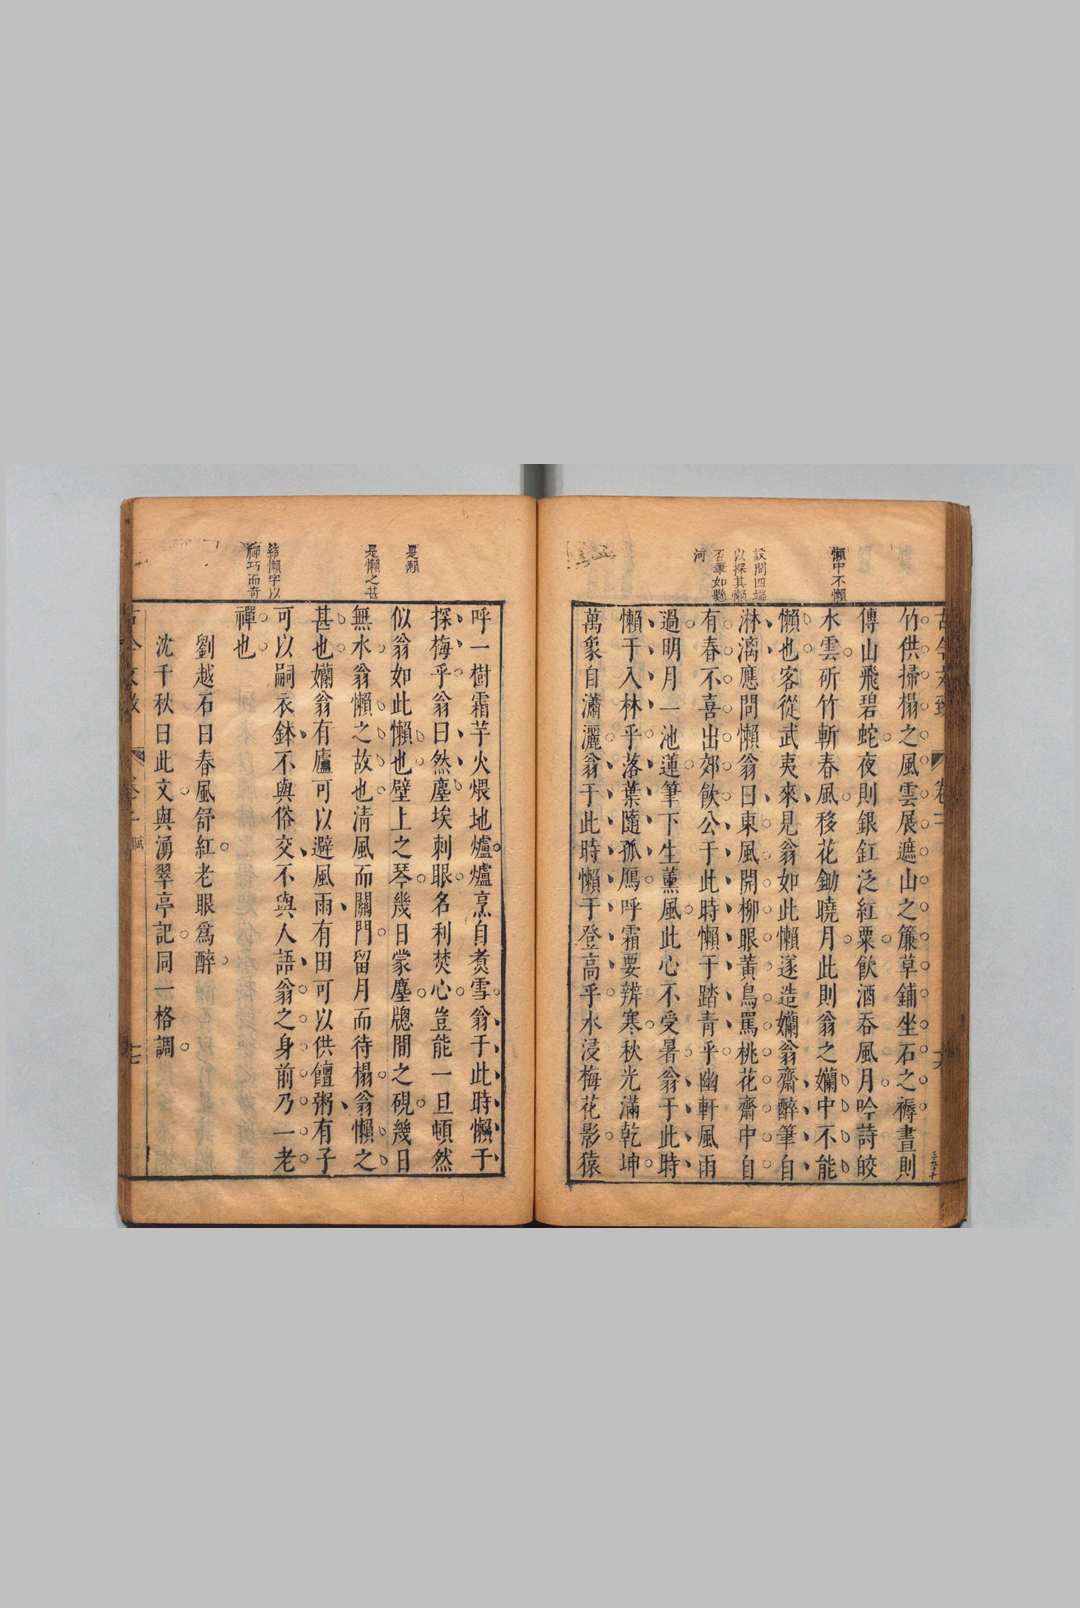 竹供掃榻之風雲展遮山之簾草鋪坐石之褥晝則
傳山飛碧蛇夜則銀釭泛紅粟飲酒吞風月吟詩皎
水雲斫竹斬春風移花鋤曉月此則翁之孏中不能
懶也客從武夷來見翁如此懶遂造孏翁齋醉筆自
淋漓應問懶翁曰東風開柳眼黃鳥罵桃花齋中自
有春不喜出郊飲公于此時懶于踏青乎幽軒風雨
過明月一池蓮筆下生薰風此心不受暑翁于此時
懶于入林乎落葉隨孤鴈呼霜要辨寒秋光滿乾坤
萬象自瀟灑翁于此時懶于登高乎水浸梅花影猿
懶中不懶
設問四端
以探其懶
否筆如懸
河
呼一樹霜芋火煨地爐爐烹自煑雪翁于此時懶于
探梅乎翁曰然塵埃刺眼名利焚心豈能一旦頓然
似翁如此懶也壁上之琴幾日蒙塵牕間之硯幾日
無水翁懶之故也清風而關門留月而待榻翁懶之
甚也孏翁有廬可以避風雨有田可以供饘粥有子
可以嗣衣鉢不與俗交不與人語翁之身前乃一老
禪也
劉越石曰春風舒紅老眼爲醉
沈千秋曰此文與湧翠亭記同一格調
是懶
是懶之甚
結懶字以
禪巧而奇